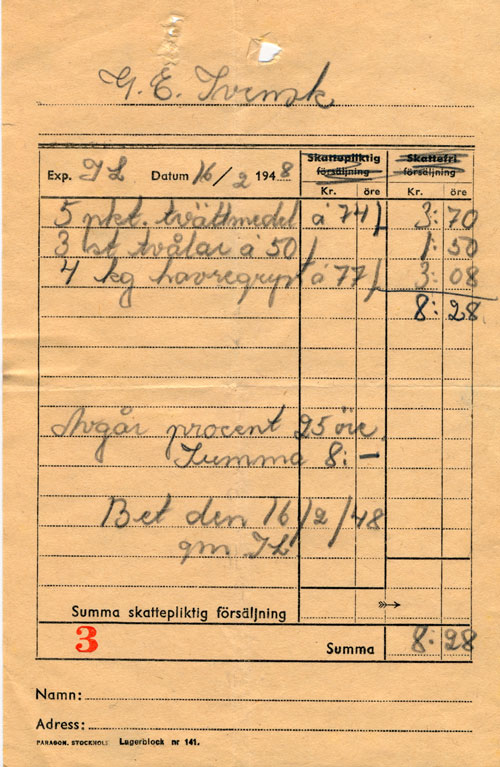 G. E. Svensk
Exp. IL Datum 16/2 1948
Skattepliktig försäljning Skattefri försäljning
Kr. öre Kr. öre
5 pkt. tvättmedel á 74/ 3:70
3 st tvålar á 50/ 1:50
4 kg havregryn á 77/ 3:08
8:28
Avgår procent 25 öre
Summa 8:-
Bet den 16/2/48
gm IL
Summa skattepliktig försäljning
3 Summa 8:28
Namn:
Adress:
PARAGON, STOCKHOLM Lagerblock nr 141.